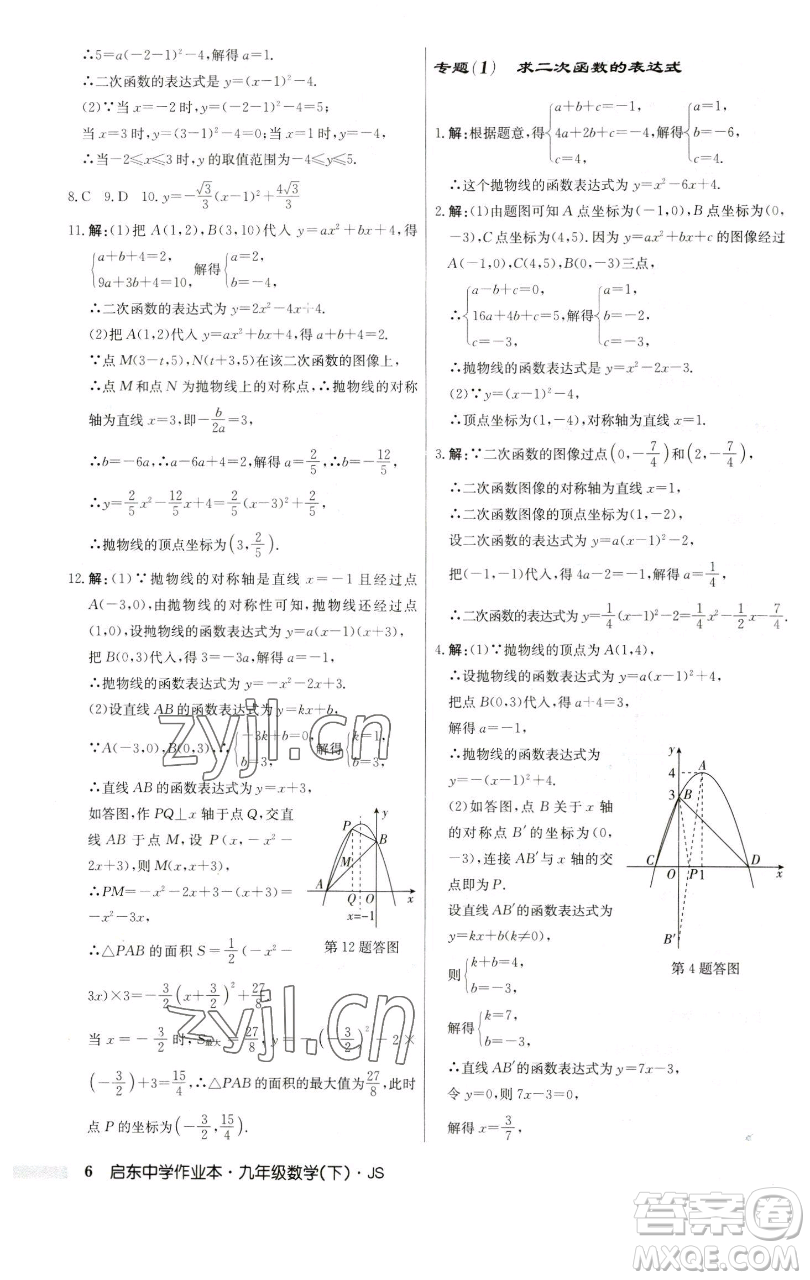 ∴5=a(-2-1)²-4,解得a=1.
∴二次函数的表达式是y=(x-1)²-4.
(2)∵当x=-2时,y=(-2-1)²-4=5;
当x=3时,y=(3-1)²-4=0;当x=1时,y=-4.
∴当-2≤x≤3时,y的取值范围为-4≤y≤5.
8.C 9.D 10.y=-√3/3(x-1)²+4√3/3
11.解:(1)把A(1,2)、B(3,10)代入y=ax²+bx+4,得
{a+b+4=2, 9a+3b+4=10, 解得{a=2, b=-4.
∴二次函数的表达式为y=2x²-4x+4.
(2)把A(1,2)代入y=ax²+bx+4,得a+b+4=2.
∵点M(3-t,5),N(t+3,5)在该二次函数的图像上,
∴点M和点N为抛物线上的对称点,∴抛物线的对称
轴为直线x=3,即-b/2a=3,
∴b=-6a,∴a-6a+4=2,解得a=2/5,∴b=-12/5,
∴y=2/5x²-12/5x+4=2/5(x-3)²+2/5,
∴抛物线的顶点坐标为(3,2/5).
12.解:(1)∵抛物线的对称轴是直线x=-1且经过点
A(-3,0),由抛物线的对称性可知,抛物线还经过点
(1,0),设抛物线的函数表达式为y=a(x-1)(x+3),
把B(0,3)代入,得3=-3a,解得a=-1.
∴抛物线的函数表达式为y=-x²-2x+3.
(2)设直线AB的函数表达式为y=kx+b,
∵A(-3,0),B(0,3),∴{-3k+b=0, b=3, 解得{k=1, b=3,
∴直线AB的函数表达式为y=x+3,
如答图,作PQ⊥x轴于点Q,交直
线AB于点M,设P(x,-x²-
2x+3),则M(x,x+3),
∴PM=-x²-2x+3-(x+3)=
-x²-3x,
∴△PAB的面积S=1/2(-x²-
3x)×3=-3/2(x+3/2)²+27/8.
当x=-3/2时,S最大=27/8,y=-(-3/2)²-2×
(-3/2)+3=15/4,∴△PAB的面积的最大值为27/8,此时
点P的坐标为(-3/2,15/4).
y
P
B
M
A
Q O x
x=-1
第12题答图
专题(1) 求二次函数的表达式
1.解:根据题意,得{a+b+c=-1, 4a+2b+c=-4, c=4, 解得{a=1, b=-6, c=4.
∴这个抛物线的函数表达式为y=x²-6x+4.
2.解:(1)由题图可知A点坐标为(-1,0),B点坐标为(0,
-3),C点坐标为(4,5).因为y=ax²+bx+c的图像经过
A(-1,0)、C(4,5)、B(0,-3)三点,
∴{a-b+c=0, 16a+4b+c=5, c=-3, 解得{a=1, b=-2, c=-3.
∴抛物线的函数表达式是y=x²-2x-3.
(2)∵y=(x-1)²-4,
∴顶点坐标为(1,-4),对称轴为直线x=1.
3.解:∵二次函数的图像过点(0,-7/4)和(2,-7/4),
∴二次函数图像的对称轴为直线x=1,
∴二次函数的顶点坐标为(1,-2),
设二次函数的表达式为y=a(x-1)²-2,
把(-1,-1)代入,得4a-2=-1,解得a=1/4,
∴二次函数的表达式为y=1/4(x-1)²-2=1/4x²-1/2x-7/4.
4.解:(1)∵抛物线的顶点为A(1,4),
∴设抛物线的函数表达式为y=a(x-1)²+4,
把点B(0,3)代入,得a+4=3,
解得a=-1,
∴抛物线的函数表达式为
y=-(x-1)²+4.
(2)如答图,点B关于x轴
的对称点B′的坐标为(0,
-3),连接AB′与x轴的交
点即为P.
设直线AB′的函数表达式为
y=kx+b(k≠0),
则{k+b=4, b=-3,
解得{k=7, b=-3,
∴直线AB′的函数表达式为y=7x-3,
令y=0,则7x-3=0,
解得x=3/7,
y
4 A
3 B
C O P1 D x
B′
第4题答图
zyjl.cn
zyjl.cn
6 启东中学作业本·九年级数学(下)·JS
答案圈
MXQE.COM